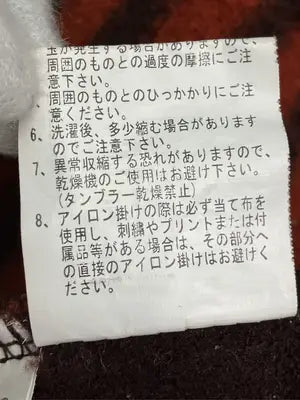 玉が発生する場合がありますので、
周囲のものとの過度の摩擦にご注
意下さい。
周囲のものとのひっかかりにご注
意ください。
6、洗濯後、多少縮む場合があります
のでご注意下さい。
7、異常収縮する恐れがありますので、
乾燥機のご使用はお避け下さい。
(タンブラー乾燥禁止)
8、アイロン掛けの際は必ず当て布を
使用し、刺繍やプリントまたは付
属品等がある場合は、その部分へ
の直接のアイロン掛けはお避けく
ださい。